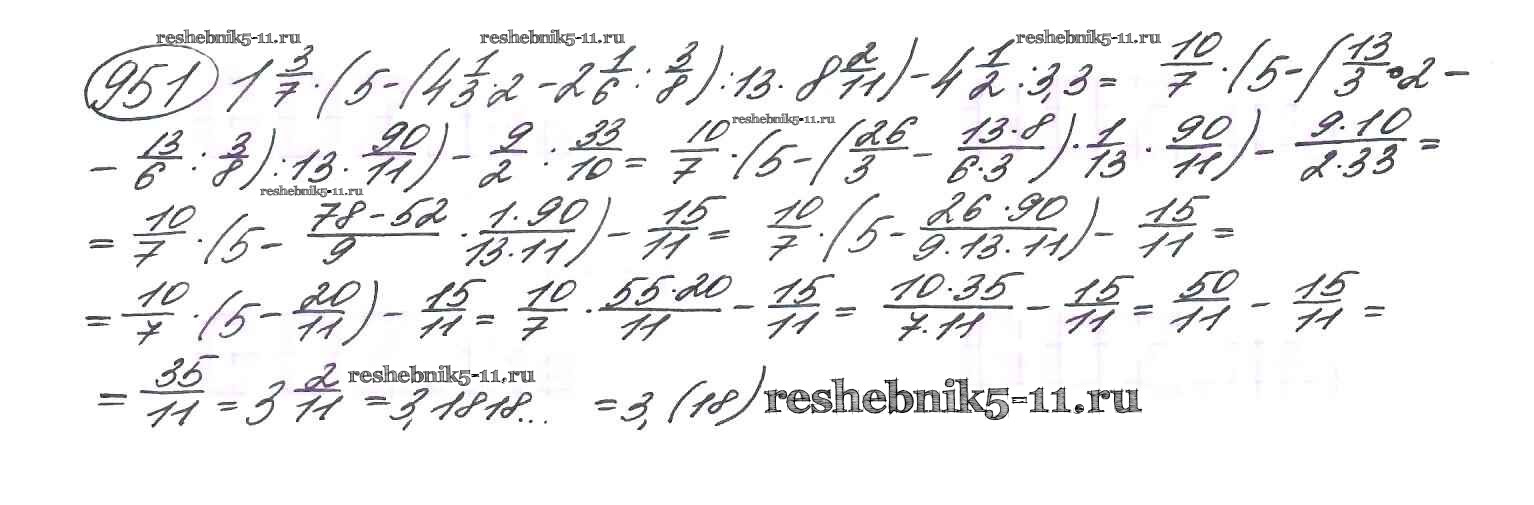 reshebnik5-11.ru reshebnik5-11.ru reshebnik5-11.ru
951 1 3/7 · (5 - (4 1/3 · 2 - 2 1/6 : 3/8) : 13 · 8 2/11) - 4 1/2 : 3,3 = 10/7 · (5 - (13/3 · 2 -
reshebnik5-11.ru
- 13/6 : 3/8) : 13 · 90/11) - 9/2 : 33/10 = 10/7 · (5 - (26/3 - 13·8/6·3) · 1/13 · 90/11) - 9·10/2·33 =
reshebnik5-11.ru
= 10/7 · (5 - 78-52/9 · 1·90/13·11) - 15/11 = 10/7 · (5 - 26·90/9·13·11) - 15/11 =
= 10/7 · (5 - 20/11) - 15/11 = 10/7 · 55·20/11 - 15/11 = 10·35/7·11 - 15/11 = 50/11 - 15/11 =
= 35/11 = 3 2/11 = 3,1818... = 3,(18)
reshebnik5-11.ru
reshebnik5-11.ru